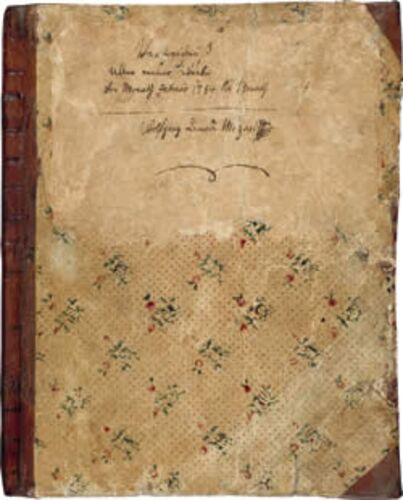 Verzeichnüß
aller meiner Werke
vom Monath Febrario 1784 bis Monath
Wolfgang Amadé Mozart